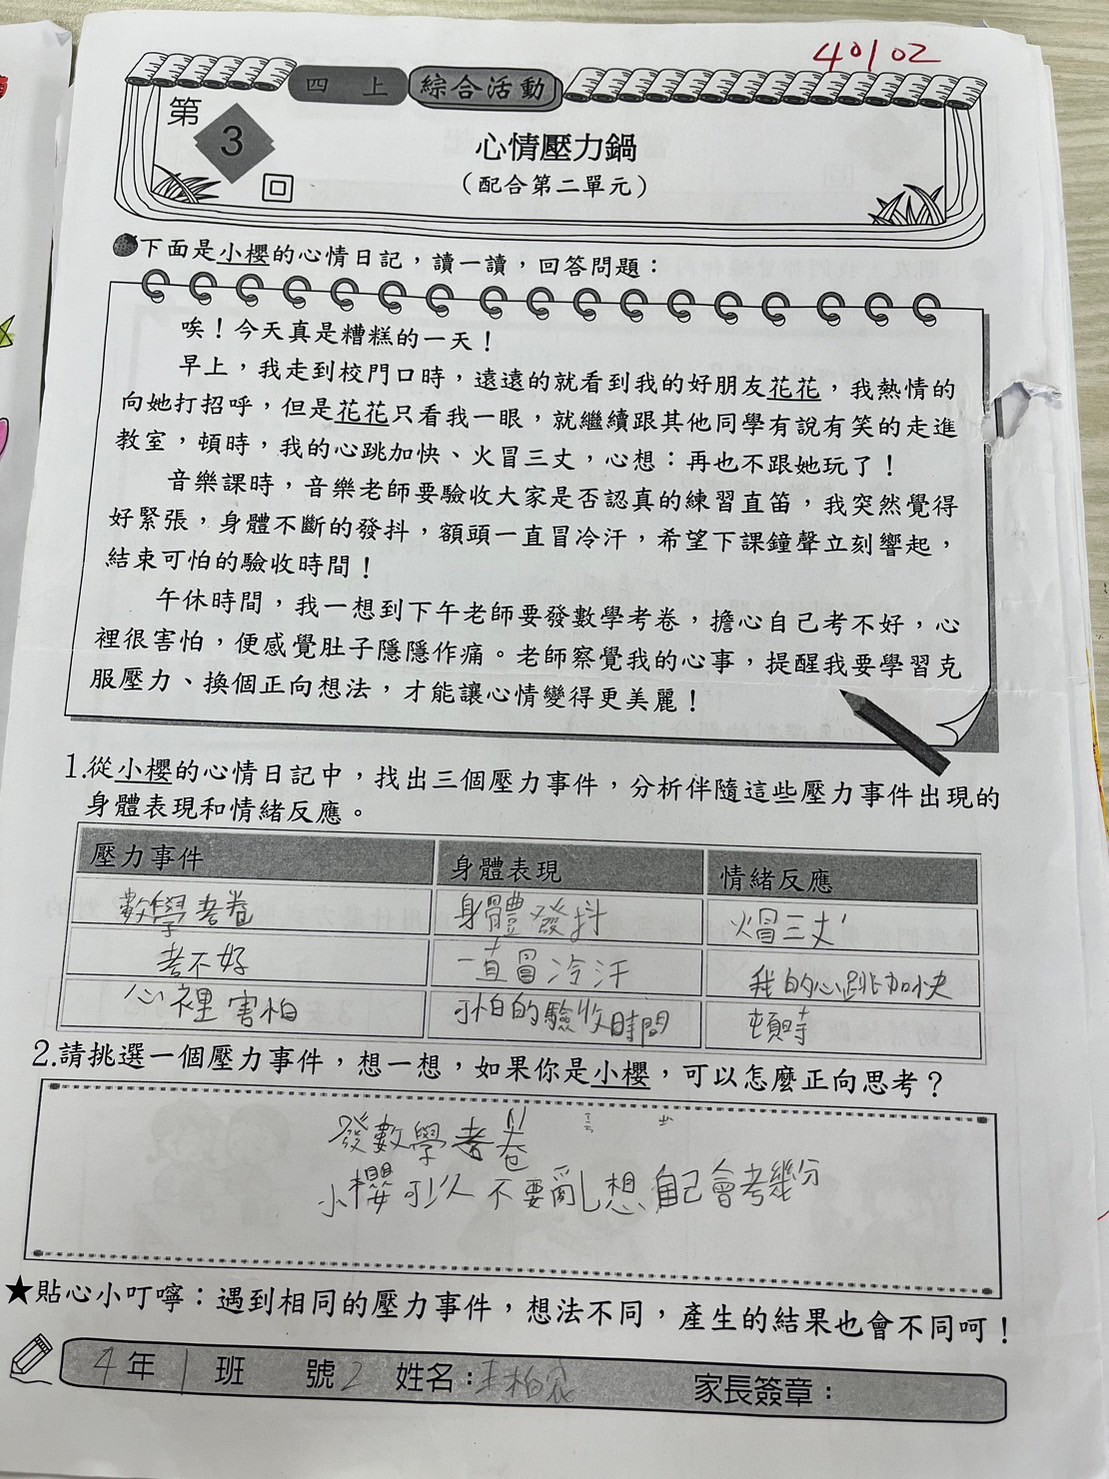 40102
四 上 綜合活動
第3回
心情壓力鍋
（配合第二單元）
下面是小櫻的心情日記，讀一讀，回答問題：
唉！今天真是糟糕的一天！
早上，我走到校門口時，遠遠的就看到我的好朋友花花，我熱情的
向她打招呼，但是花花只看我一眼，就繼續跟其他同學有說有笑的走進
教室，頓時，我的心跳加快、火冒三丈，心想：再也不跟她玩了！
音樂課時，音樂老師要驗收大家是否認真的練習直笛，我突然覺得
好緊張，身體不斷的發抖，額頭一直冒冷汗，希望下課鐘聲立刻響起，
結束可怕的驗收時間！
午休時間，我一想到下午老師要發數學考卷，擔心自己考不好，心
裡很害怕，便感覺肚子隱隱作痛。老師察覺我的心事，提醒我要學習克
服壓力、換個正向想法，才能讓心情變得更美麗！
1.從小櫻的心情日記中，找出三個壓力事件，分析伴隨這些壓力事件出現的
身體表現和情緒反應。
壓力事件 身體表現 情緒反應
數學考卷 身體發抖 火冒三丈
考不好 一直冒冷汗 我的心跳加快
心裡害怕 可怕的驗收時間 頓時
2.請挑選一個壓力事件，想一想，如果你是小櫻，可以怎麼正向思考？
發數學考卷
小櫻可以不要亂想自己會考幾分
★貼心小叮嚀：遇到相同的壓力事件，想法不同，產生的結果也會不同呵！
4年 1 班 號2 姓名：王柏 家長簽章：